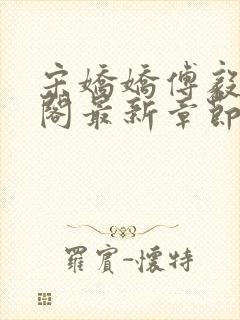 宋嬌嬌傅毅
閣最新章節
羅賓-懷特